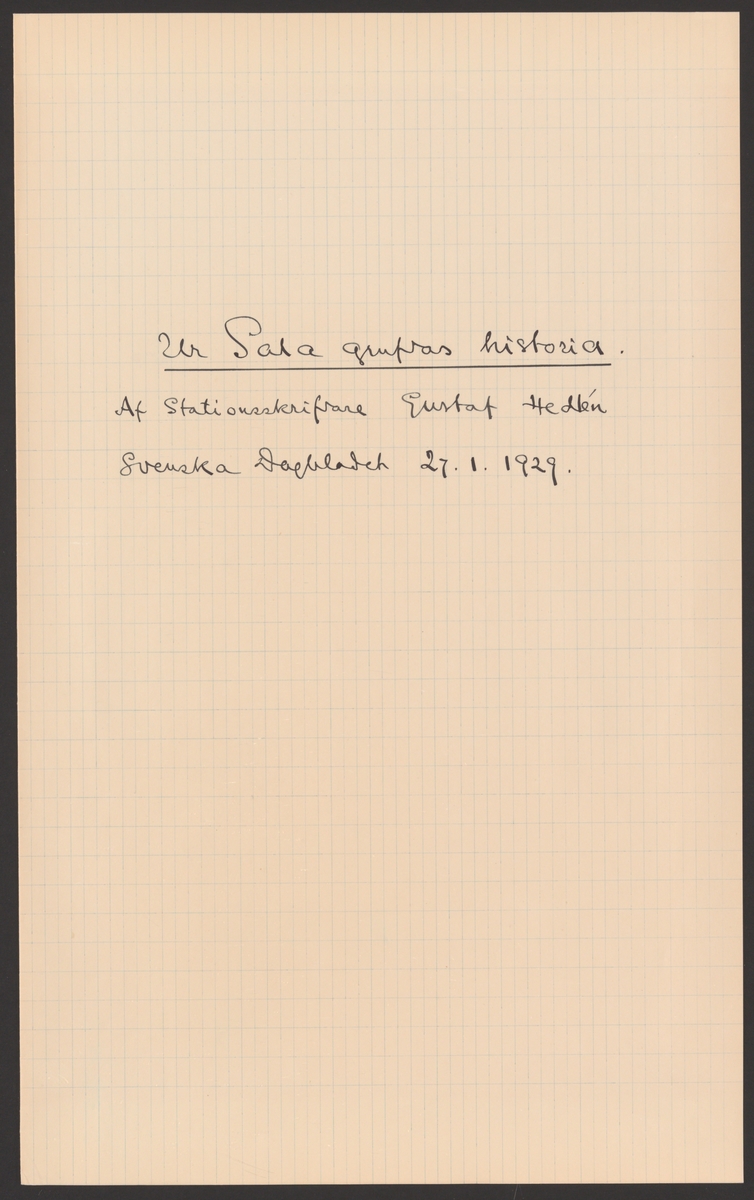 Ur Sala grufvas historia.
Af Stationsskrifvare Gustaf Hedén
Svenska Dagbladet 27. 1. 1929.